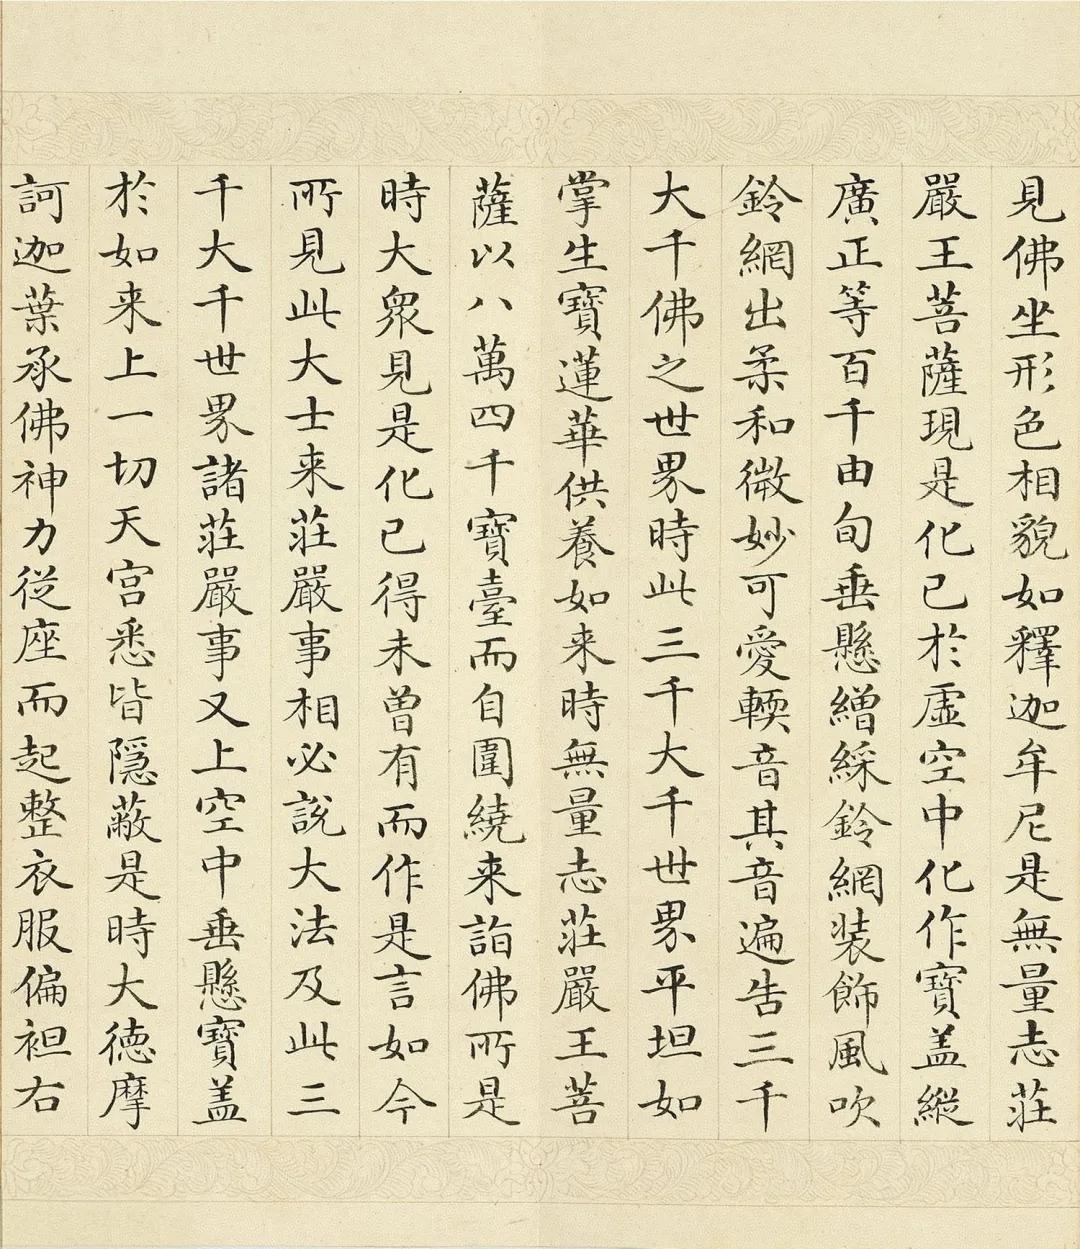 見佛坐形色相貌如釋迦牟尼是無量志莊
嚴王菩薩現是化已於虛空中化作寶盖縱
廣正等百千由旬垂懸繒綵鈴網装飾風吹
鈴網出柔和微妙可愛輭音其音遍告三千
大千佛之世界時此三千大千世界平坦如
掌生寶蓮華供養如来時無量志莊嚴王菩
薩以八萬四千寶臺而自圍繞来詣佛所是
時大眾見是化已得未曾有而作是言如今
所見此大士来莊嚴事相必說大法及此三
千大千世界諸莊嚴事又上空中垂懸寶盖
於如来上一切天宮悉皆隱蔽是時大德摩
訶迦葉承佛神力從座而起整衣服偏袒右